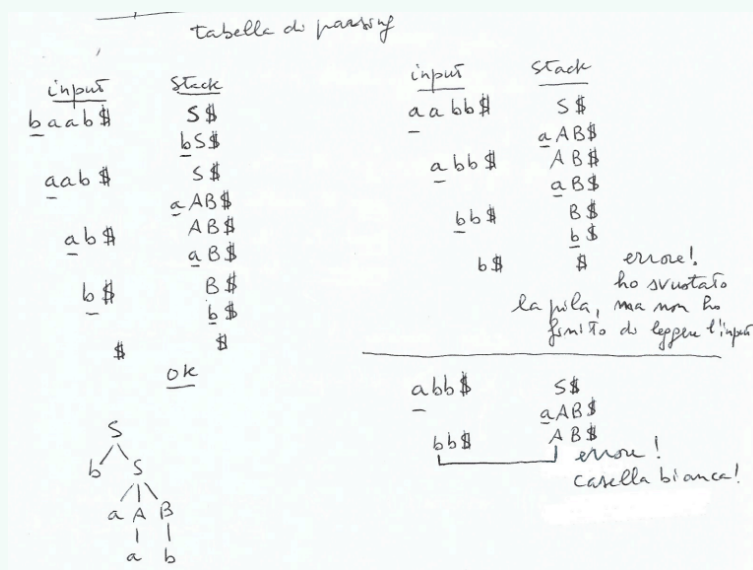 tabella di parsing
input Stack
baab$ S$
bS$
aab$ S$
aAB$
AB$
ab$ aB$
b$ B$
b$
$ $
ok
S
b S
a A B
a b
input Stack
aabb$ S$
aAB$
abb$ AB$
aB$
bb$ B$
b$
b$ $ errore!
ho svuotato
la pila, ma non ho
finito di leggere l'input
abb$ S$
aAB$
bb$ AB$
errore!
casella bianca!